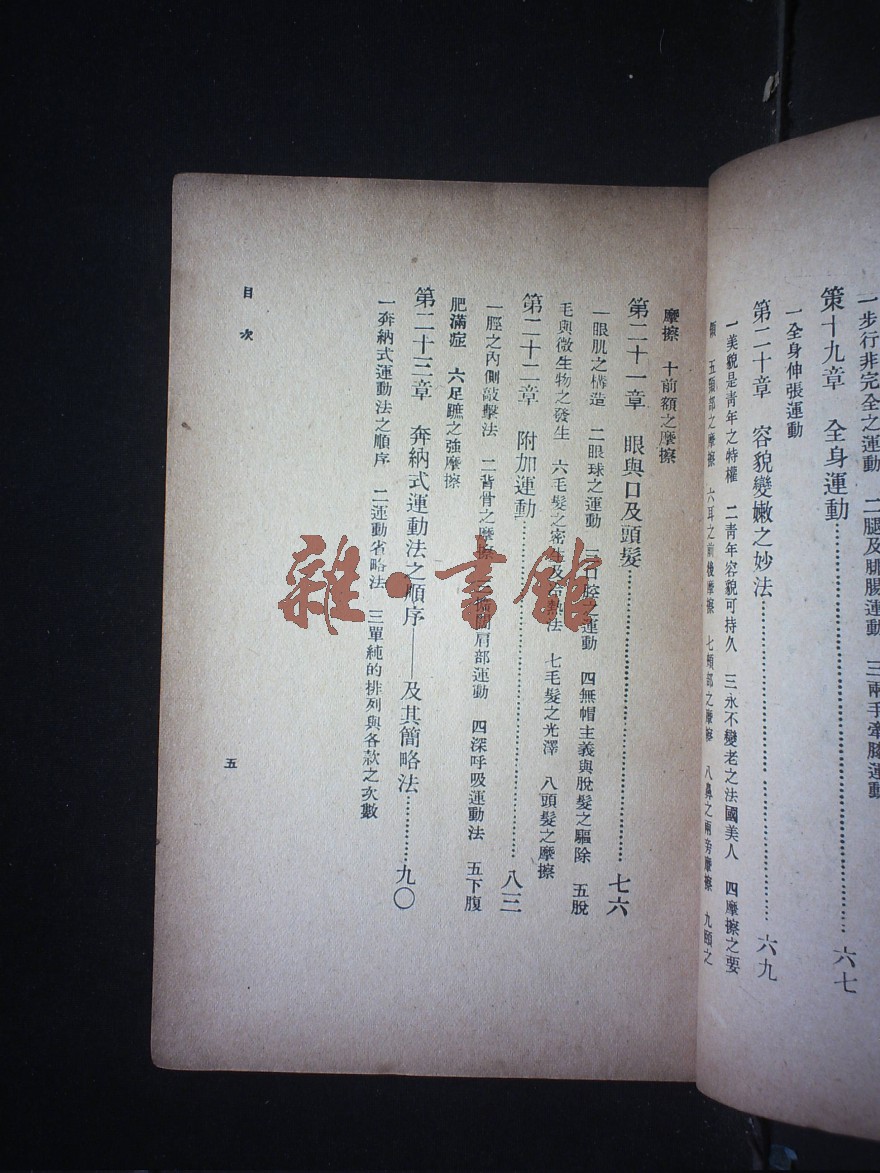 一步行非完全之運動　二腿及腓腸運動　三兩手牽膝運動
策十九章　全身運動……六七
一全身伸張運動
第二十章　容貌變嫩之妙法……六九
一美貌是靑年之特權　二靑年容貌可持久　三永不變老之法國美人　四摩擦之要
領　五顎部之摩擦　六耳之前後摩擦　七頰部之摩擦　八鼻之兩旁摩擦　九頤之
摩擦　十前額之摩擦
第二十一章　眼與口及頭髮……七六
一眼肌之構造　二眼球之運動　三口腔之運動　四無帽主義與脫髮之驅除　五脫
毛與微生物之發生　六毛髮之密生及　熱法　七毛髮之光澤　八頭髮之摩擦
第二十二章　附加運動……八三
一脛之內側敲擊法　二背骨之摩擦　肩部運動　四深呼吸運動法　五下腹
肥滿症　六足蹠之強摩擦
第二十三章　奔納式運動法之順序——及其簡略法……九〇
一奔納式運動法之順序　二運動省略法　三單純的排列與各款之次數
目次
五
雜·書館